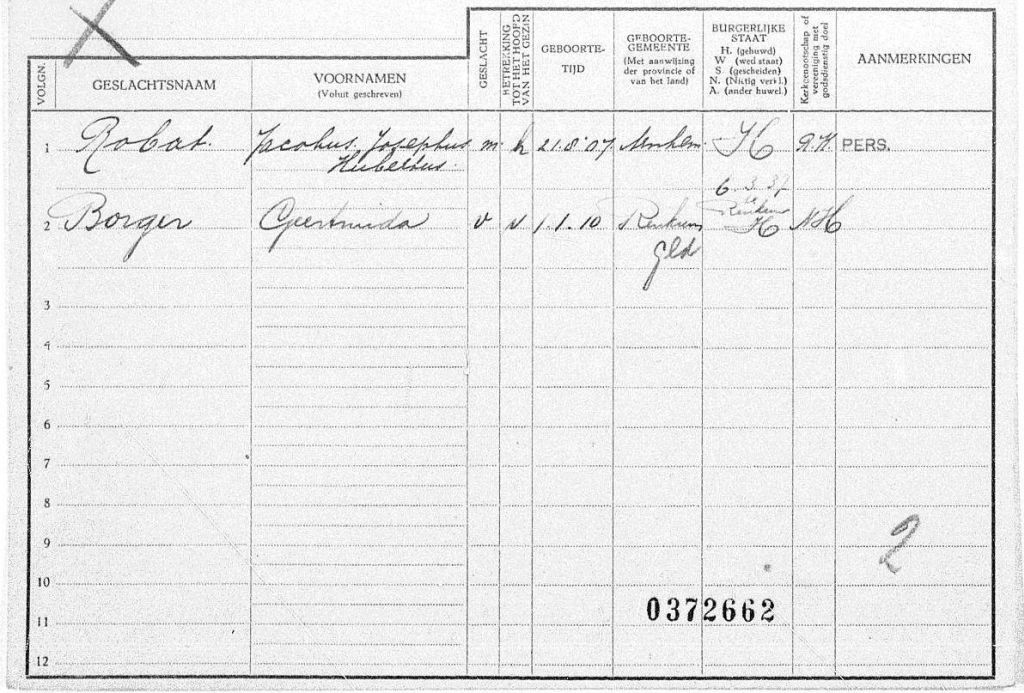 VOLGN.
GESLACHTSNAAM
VOORNAMEN
(Voluit geschreven)
GESLACHT
BETREKKING
TOT HET HOOFD
VAN HET GEZIN
GEBOORTE-
TIJD
GEBOORTE-
GEMEENTE
(Met aanwijzing
der provincie of
van het land)
BURGERLIJKE
STAAT
H. (gehuwd)
W (wed staat)
S (gescheiden)
N. (Nietig verkl.)
A. (ander huwel.)
Kerkgenootschap of
vereeniging met
godsdienstig doel
AANMERKINGEN
1 Robat. Jacobus, Josephus m. h 21.8.07 Arnhem. H R.K. PERS.
Hubertus.
6.3.37
Renkum
2 Borger Geertruida v v 1.1.10 Renkum H NH
Gld
3
4
5
6
7
8
9
2
10
11 0372662
12